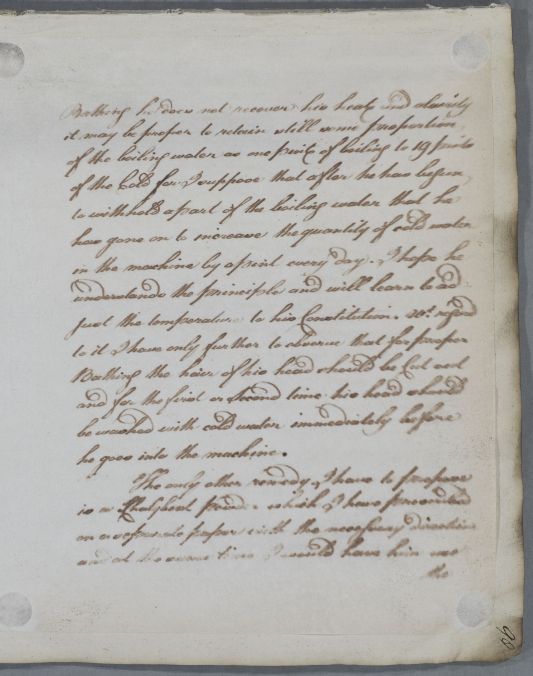 Bathing he does not recover his heat and alacrity
it may be proper to retain still some proportion
of the boiling water as one pint of boiling to 19 pints
of the Cold for I suppose that after he has begun
to withhold a part of the boiling water that he
has gone on to increase the quantity of cold water
in the machine by a pint every day. I hope he
understands the principle and will learn to ad
just the temperature to his Constitution. regard
to it I have only further to observe that for proper
Bathing the hair of his head should be Cut
and for the first or second time his head should
be washed with cold water immediately before
he goes into the machine.
The only other remedy I have to propose
is a Chalybeat which I have prescribed
on a separate paper with the necessary direction
and at the same time I would have him use
the
66